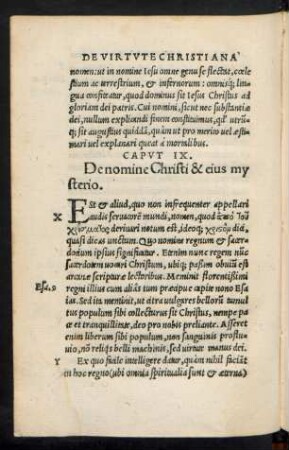 DE VIRTVTE CHRISTIANA
nomen: ut in nomine Iesu omne genu se flectat, cœle
stium ac terrestrium, & infernorum: omnisq; lin
gua confiteatur, quod dominus sit Iesus Christus ad
gloriam dei patris. Cui nomini, sicut nec substantiæ
dei, nullum explicandi finem constituimus, q̃ utrũ
q; sit augustius quiddã, quàm ut pro merito uel æsti
mari uel explanari queat à mortalibus.
CAPVT IX.
De nomine Christi & eius my
sterio.
X
EST & aliud, quo non infrequenter appellari
audis seruatorē mundi, nomen, quod ἀπὸ τοῦ
χρίσματος deriuari notum est, ideoq; χριστὸς diã,
quasi dicas unctum. Quo nomine regnum & sacer
dotium ipsius significatur. Etenim nunc regem nũc
sacerdotem uocari Christum, ubiq; passim obuiũ est
arcanæ scripturæ lectoribus. Meminit florentissimi
Esa. 9
regni illius cum aliàs tum præcipue capite nono Esa
ias. Sed ita meminit, ut citra uulgares bellorũ tumul
tus populum sibi collecturus sit Christus, nempe pa
ce et tranquillitate, deo pro nobis preliante. Asseret
enim liberum sibi populum, non sanguinis proflu
uio, nõ reliqs belli machinis, sed uirtute manus dei.
Y
Ex quo facile intelligere datur, quàm nihil faciãt
in hoc regno (ubi omnia spiritualia sunt & æterna)